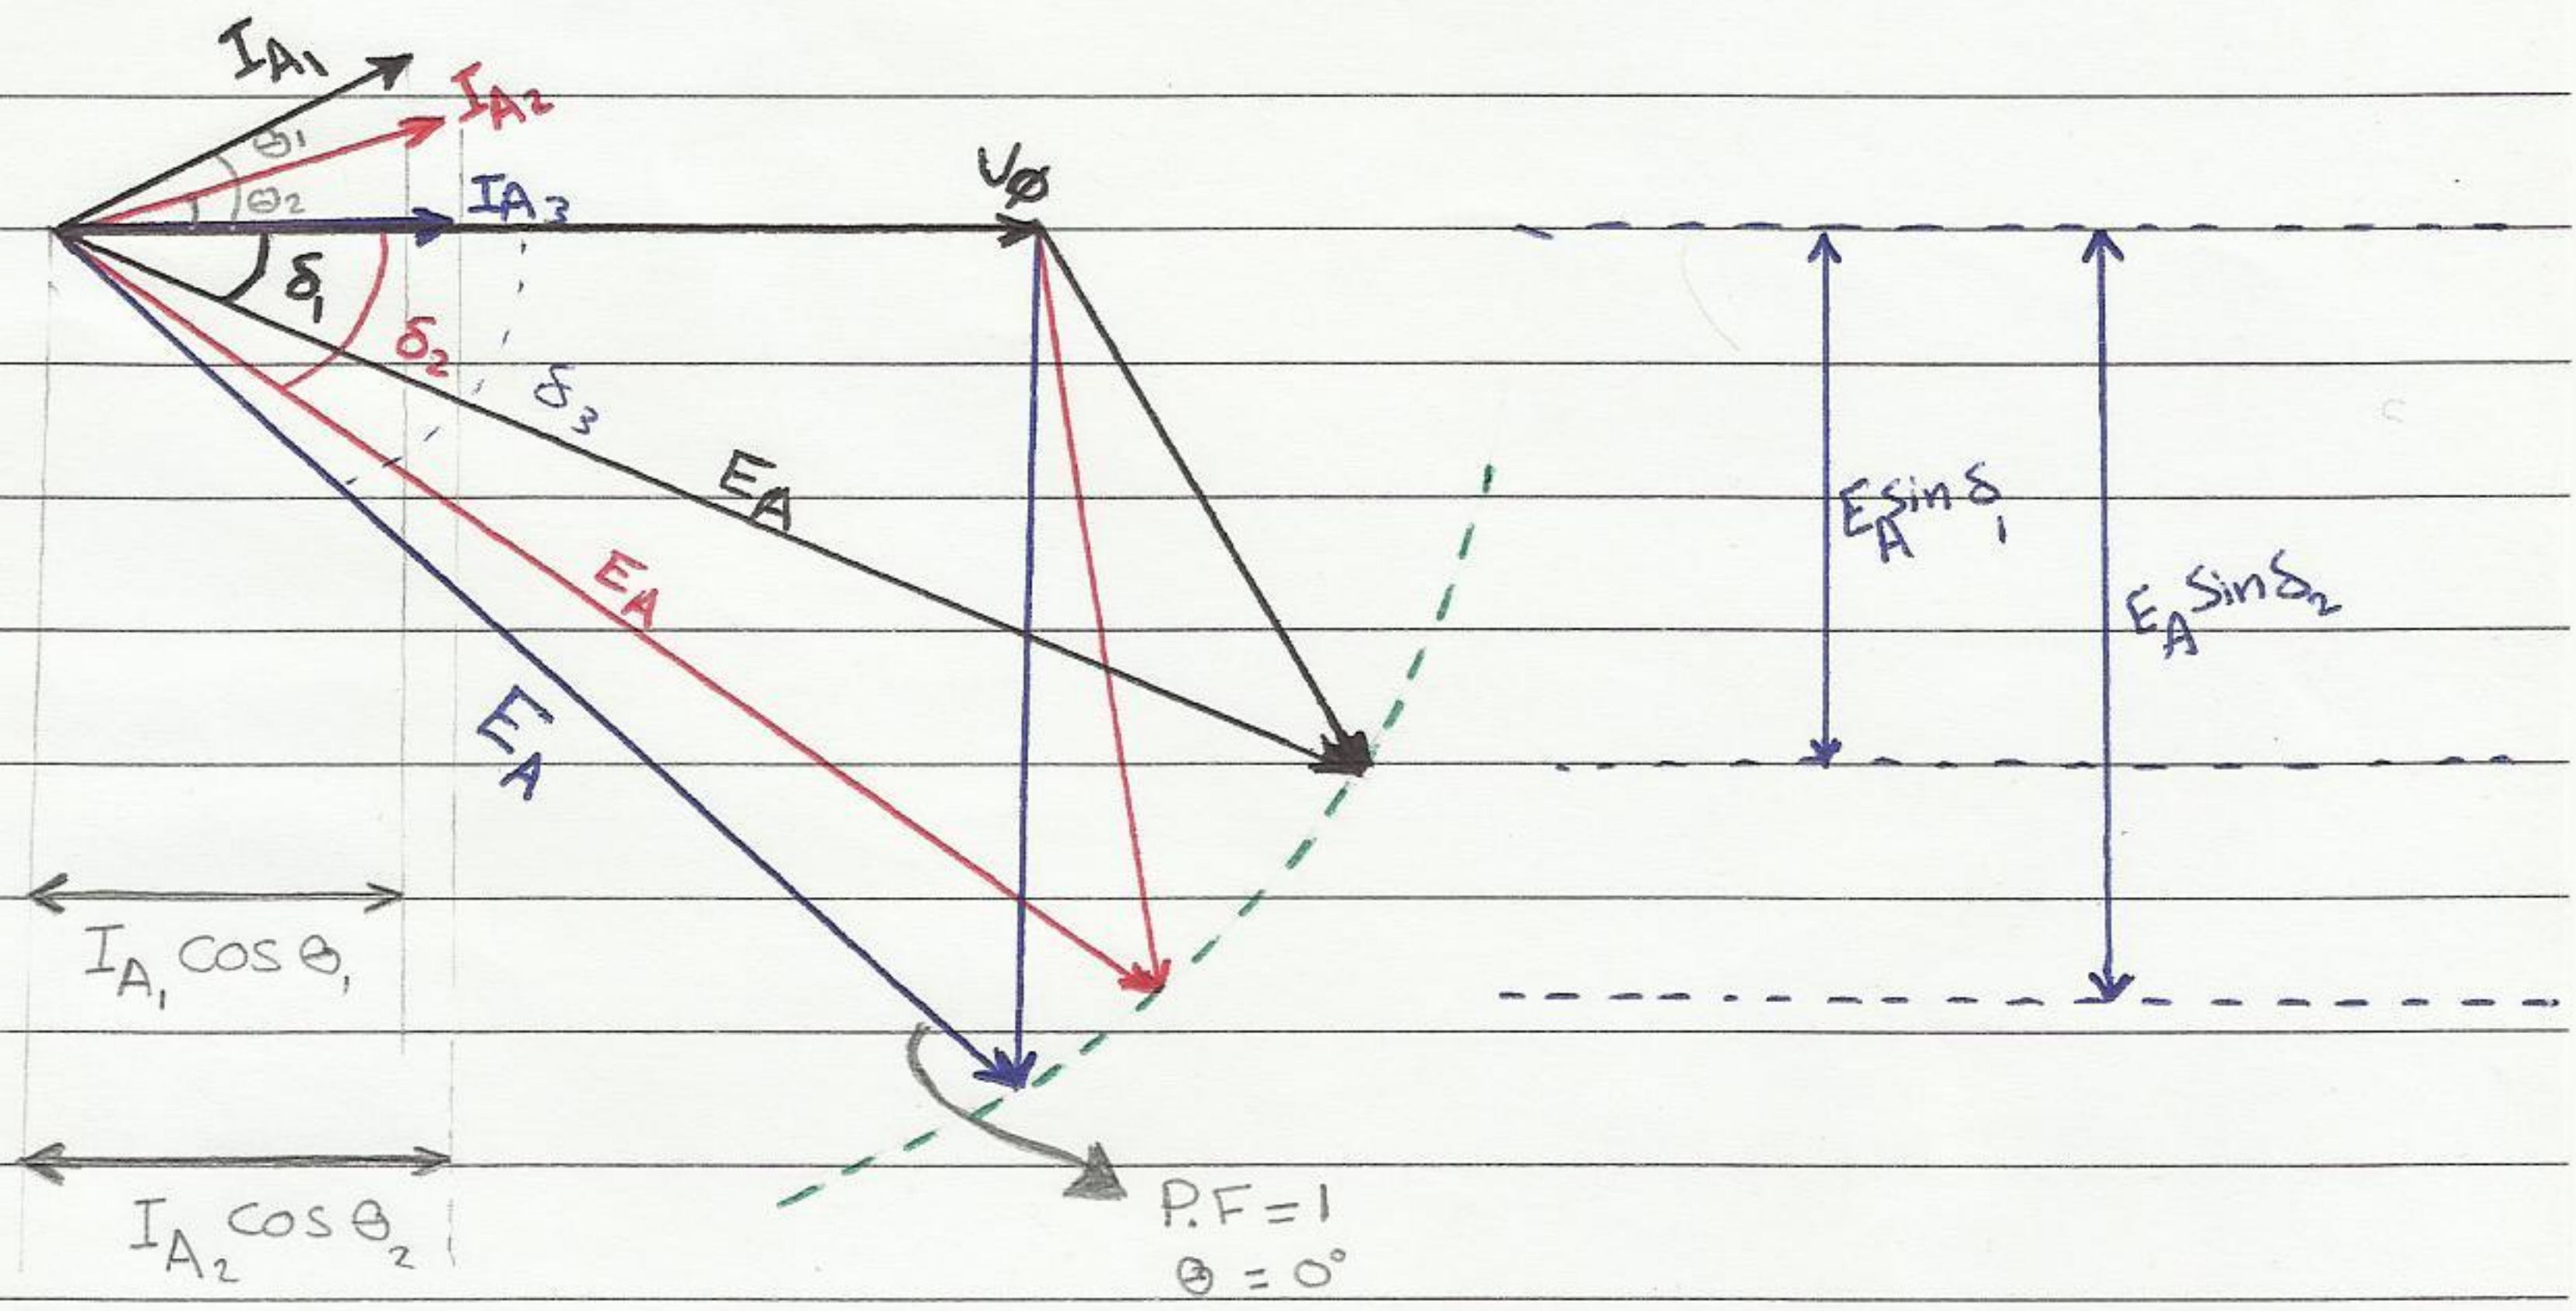 I_A1
I_A2
θ1
θ2
I_A3
Vø
δ1
δ2
δ3
E_A
E_A
E_A
E_A sin δ1
E_A sin δ2
I_A1 cos θ1
I_A2 cos θ2
P.F = 1
θ = 0°